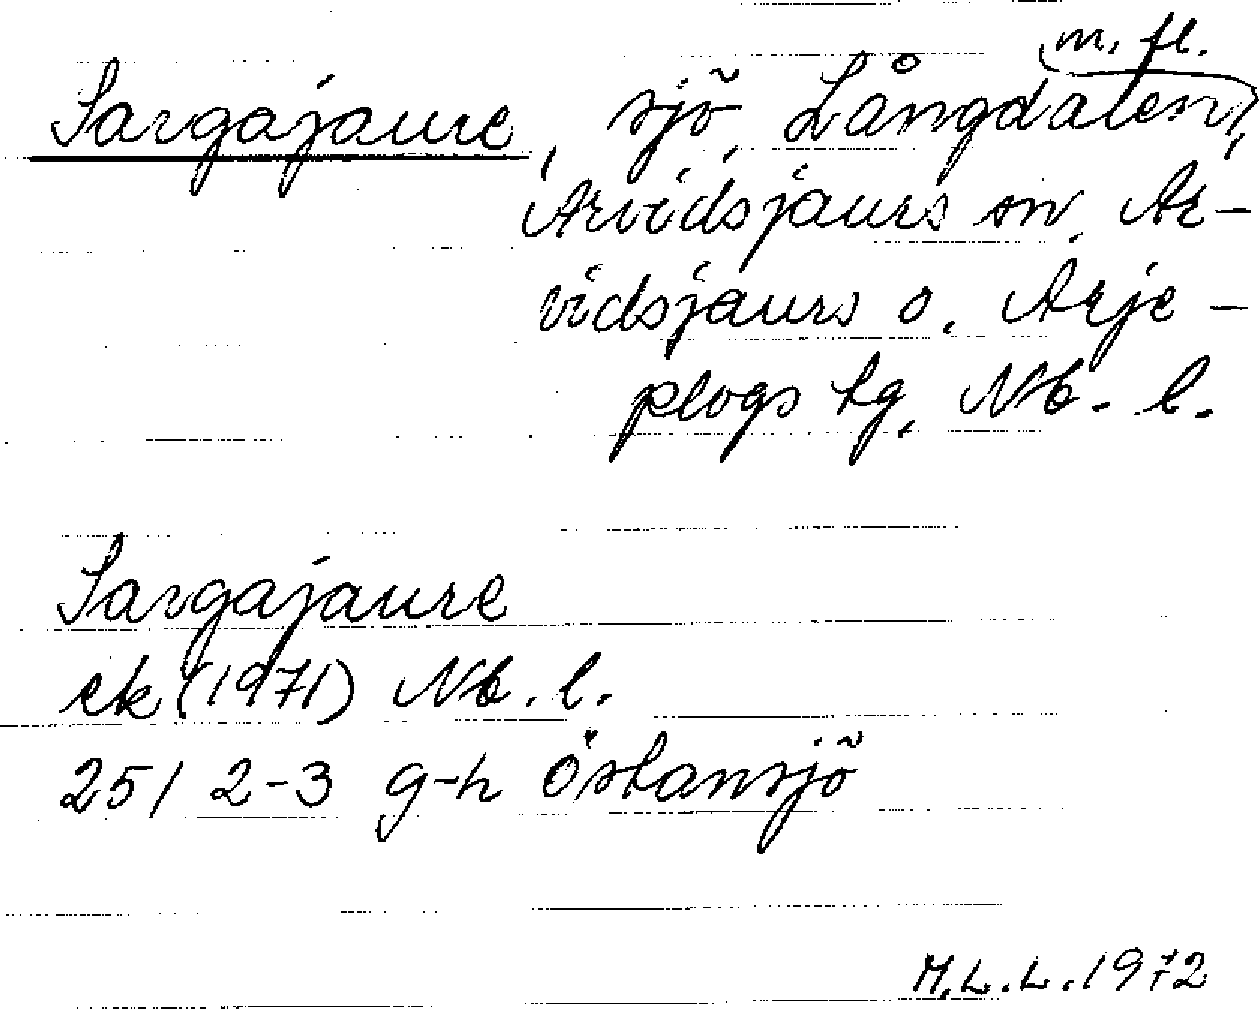 m. fl.
Sargajaure, sjö, Långdalen,
Arvidsjaurs sn, Ar-
vidsjaurs o. Arje-
plogs tg, Nb. l.
Sargajaure
ek (1971) Nb. l.
25I 2-3 g-h Östansjö
M.L.L. 1972